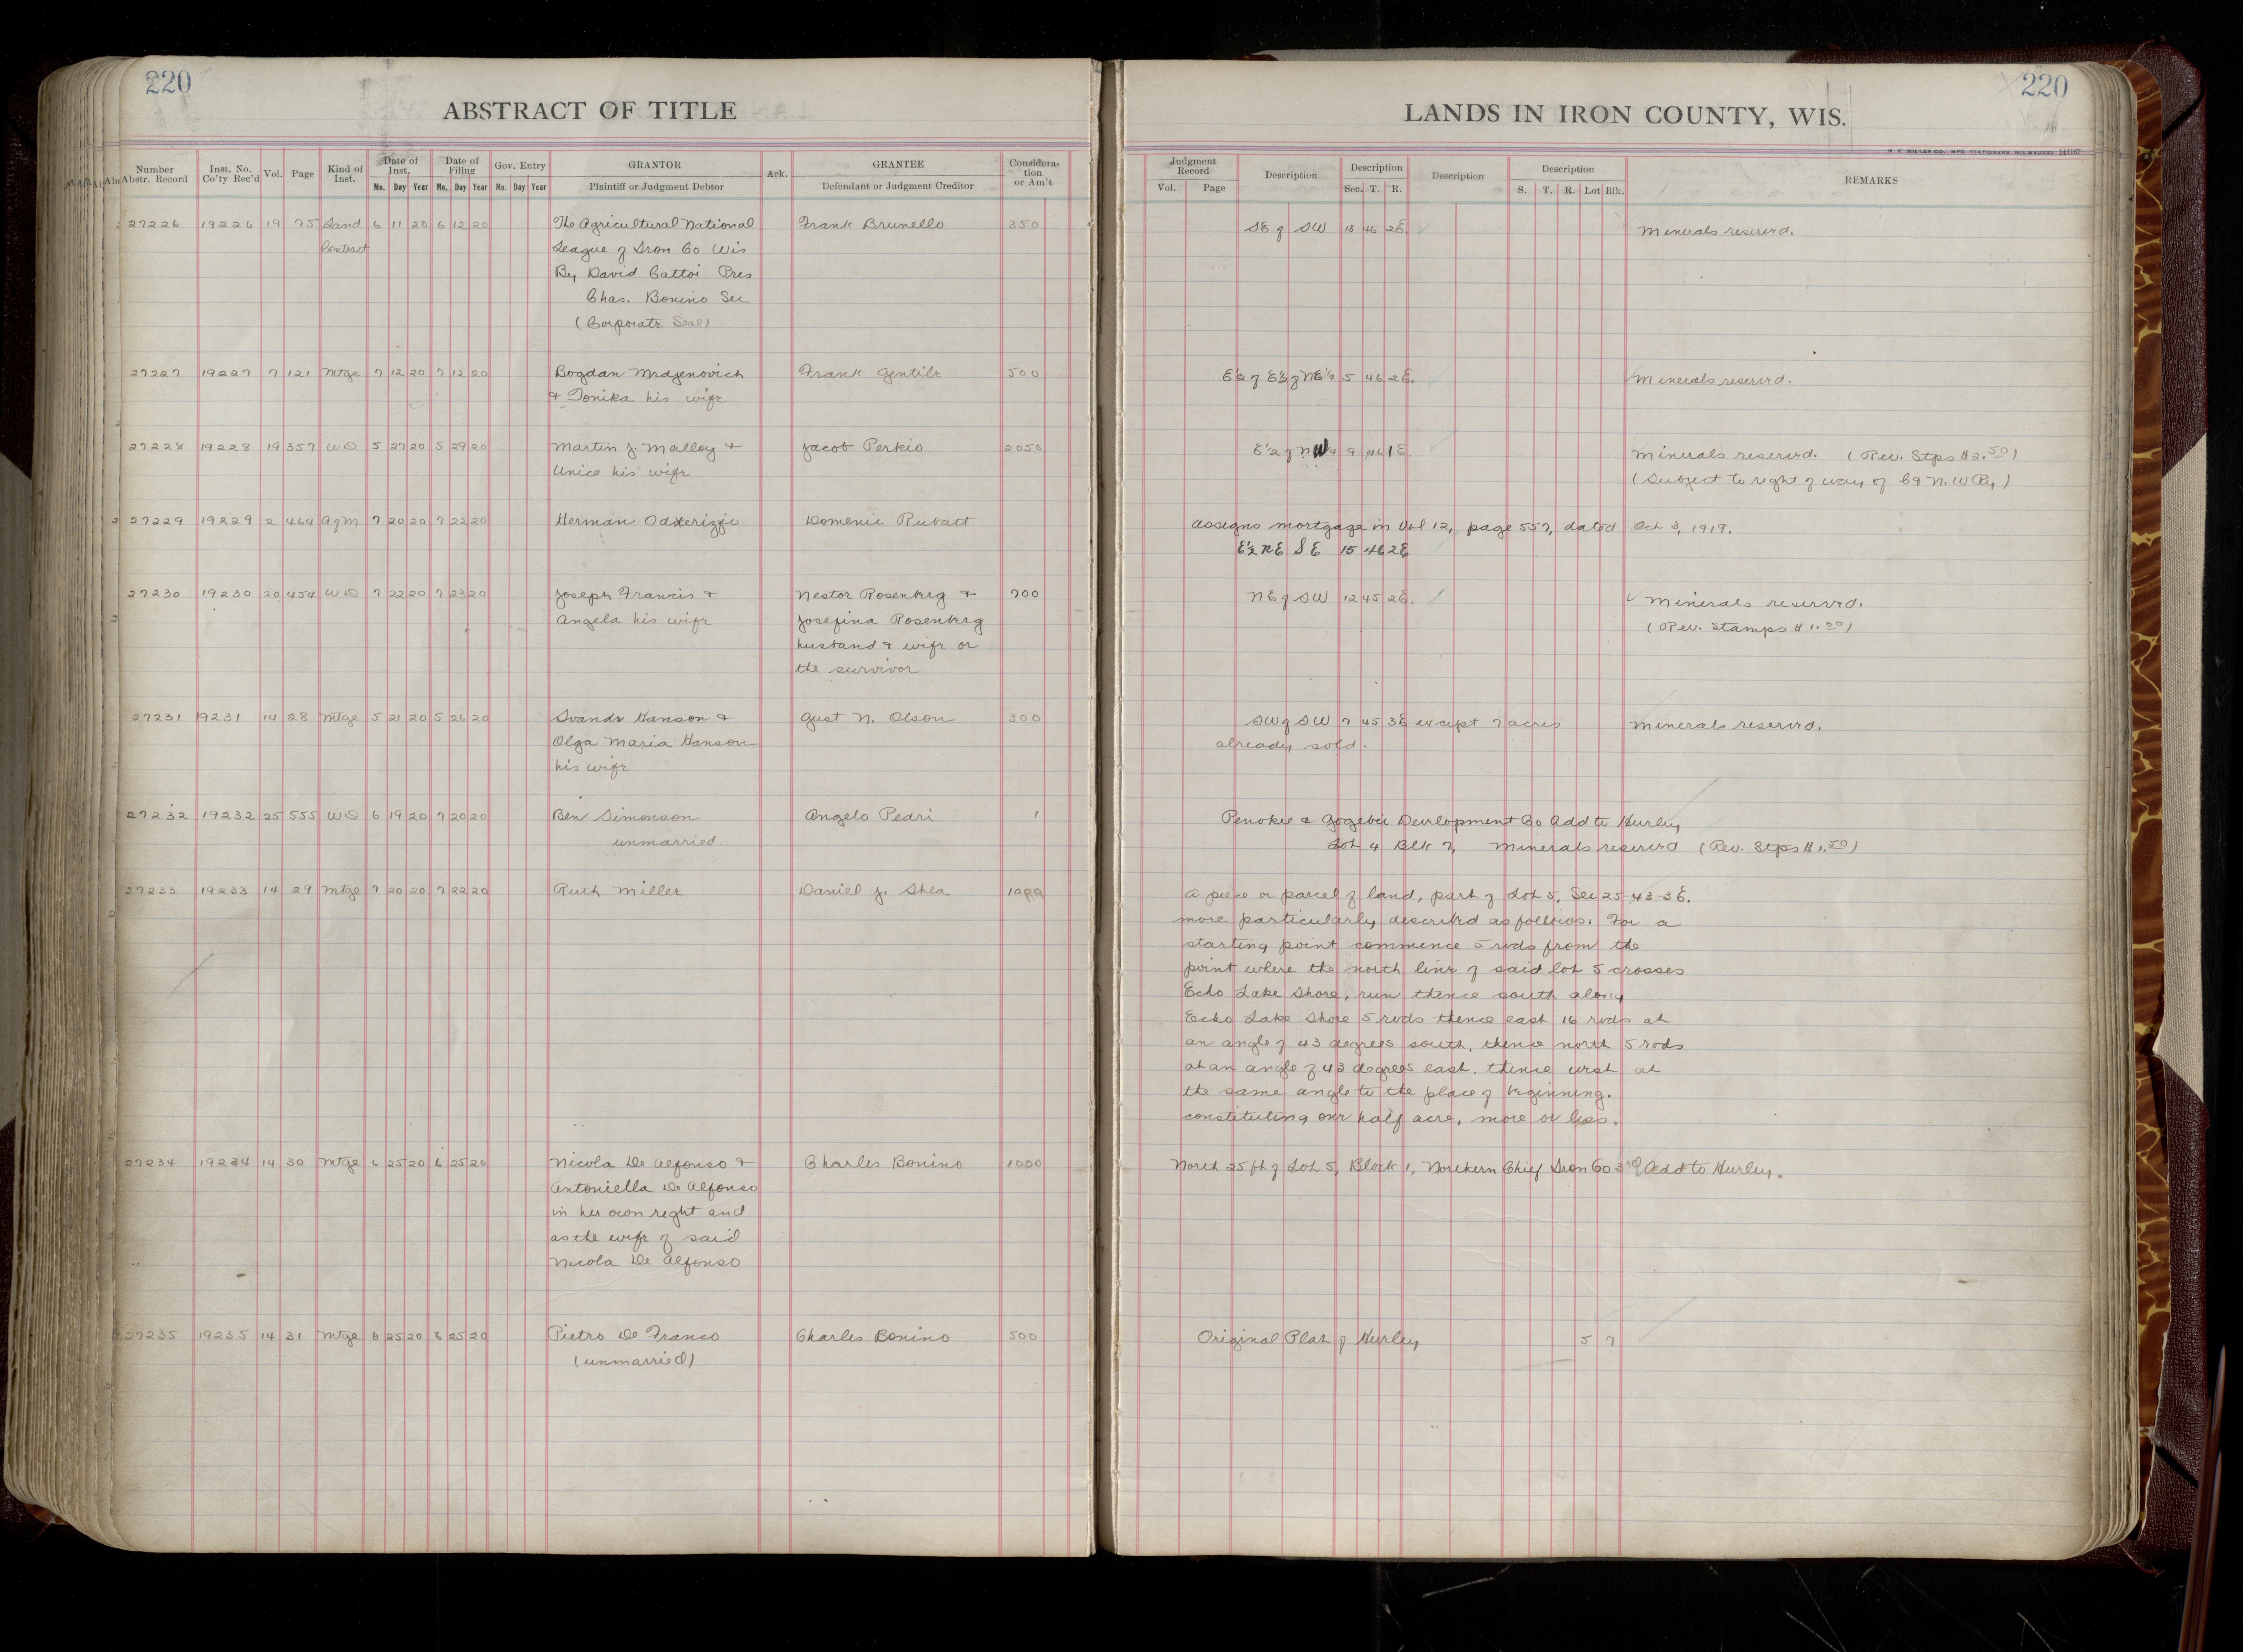 220
ABSTRACT OF TITLE
Number Abstr. Record
Inst. No. Co'ty Rec'd
Vol.
Page
Kind of Inst.
Date of Inst.
Mo. Day Year
Date of Filing
Mo. Day Year
Gov. Entry
Mo. Day Year
GRANTOR
Plaintiff or Judgment Debtor
Ack.
GRANTEE
Defendant or Judgment Creditor
Considera- tion or Am't
27226 19226 19 75 Land 6 11 20 6 12 20 The Agricultural National Frank Brunello 350
Contract League of Iron Co Wis
By David Cattoi Pres
Chas. Bonino Sec
(Corporate Seal)
27227 19227 7 121 Mtge 7 12 20 7 12 20 Bogdan Mrdjenovich Frank Gentile 500
& Tonika his wife
27228 19228 19 357 WD 5 27 20 5 29 20 Martin J. Malloy & Jacob Perkio 2050
Unice his wife
27229 19229 2 464 AofM 7 20 20 7 22 20 Herman Domenic Rubatt
27230 19230 20 454 WD 7 22 20 7 23 20 Joseph Francis & Nestor Rosenberg & 700
Angela his wife Josefina Rosenberg
husband & wife or
the survivor
27231 19231 14 28 Mtge 5 21 20 5 26 20 Svandr Hanson & Gust N. Olson 300
Olga Maria Hanson
his wife
27232 19232 25 555 WD 6 19 20 7 20 20 Ben Simonson Angelo Pedri 1
unmarried
27233 19233 14 29 Mtge 7 20 20 7 22 20 Ruth Miller Daniel J. Shea
27234 19234 14 30 Mtge 6 25 20 6 25 20 Nicola De Alfonso & Charles Bonino 1000
Antoniella De Alfonso
in her own right and
as the wife of said
Nicola De Alfonso
27235 19235 14 31 Mtge 6 25 20 6 25 20 Pietro De Franco Charles Bonino 500
(unmarried)
220
LANDS IN IRON COUNTY, WIS.
Judgment Record
Vol. Page
Description
Description
Sec. T. R.
Description
Description
S. T. R. Lot Blk.
REMARKS
SE of SW 18 46 2E. Minerals reserved.
E½ of E½ of NE¼ 5 46 2E. Minerals reserved.
E½ of NW¼ 9 46 1E. Minerals reserved. (Rev. Stps $2.50)
(Subject to right of way of C & N. W Ry)
Assigns mortgage in Vol 12, page 557, dated Oct 3, 1919.
E½ NE SE 15 46 2E
NE of SW 12 45 2E. Minerals reserved.
(Rev. Stamps $1.00)
SW of SW 7 45 3E except 7 acres Minerals reserved.
already sold.
Penokee & Gogebic Development Co Add to Hurley
Lot 4 Blk 7, Minerals reserved (Rev. Stps $1.50)
A piece or parcel of land, part of Lot 5, Sec 25-43-3E.
more particularly described as follows: For a
starting point commence 5 rods from the
point where the north line of said lot 5 crosses
Echo Lake Shore, run thence south along
Echo Lake Shore 5 rods thence east 16 rods at
an angle of 43 degrees south, thence north 5 rods
at an angle of 43 degrees east. thence west at
the same angle to the place of beginning.
constituting one half acre, more or less.
North 25 ft of Lot 5, Block 1, Northern Chief Iron Co 3rd Add to Hurley.
Original Plat of Hurley 5 7